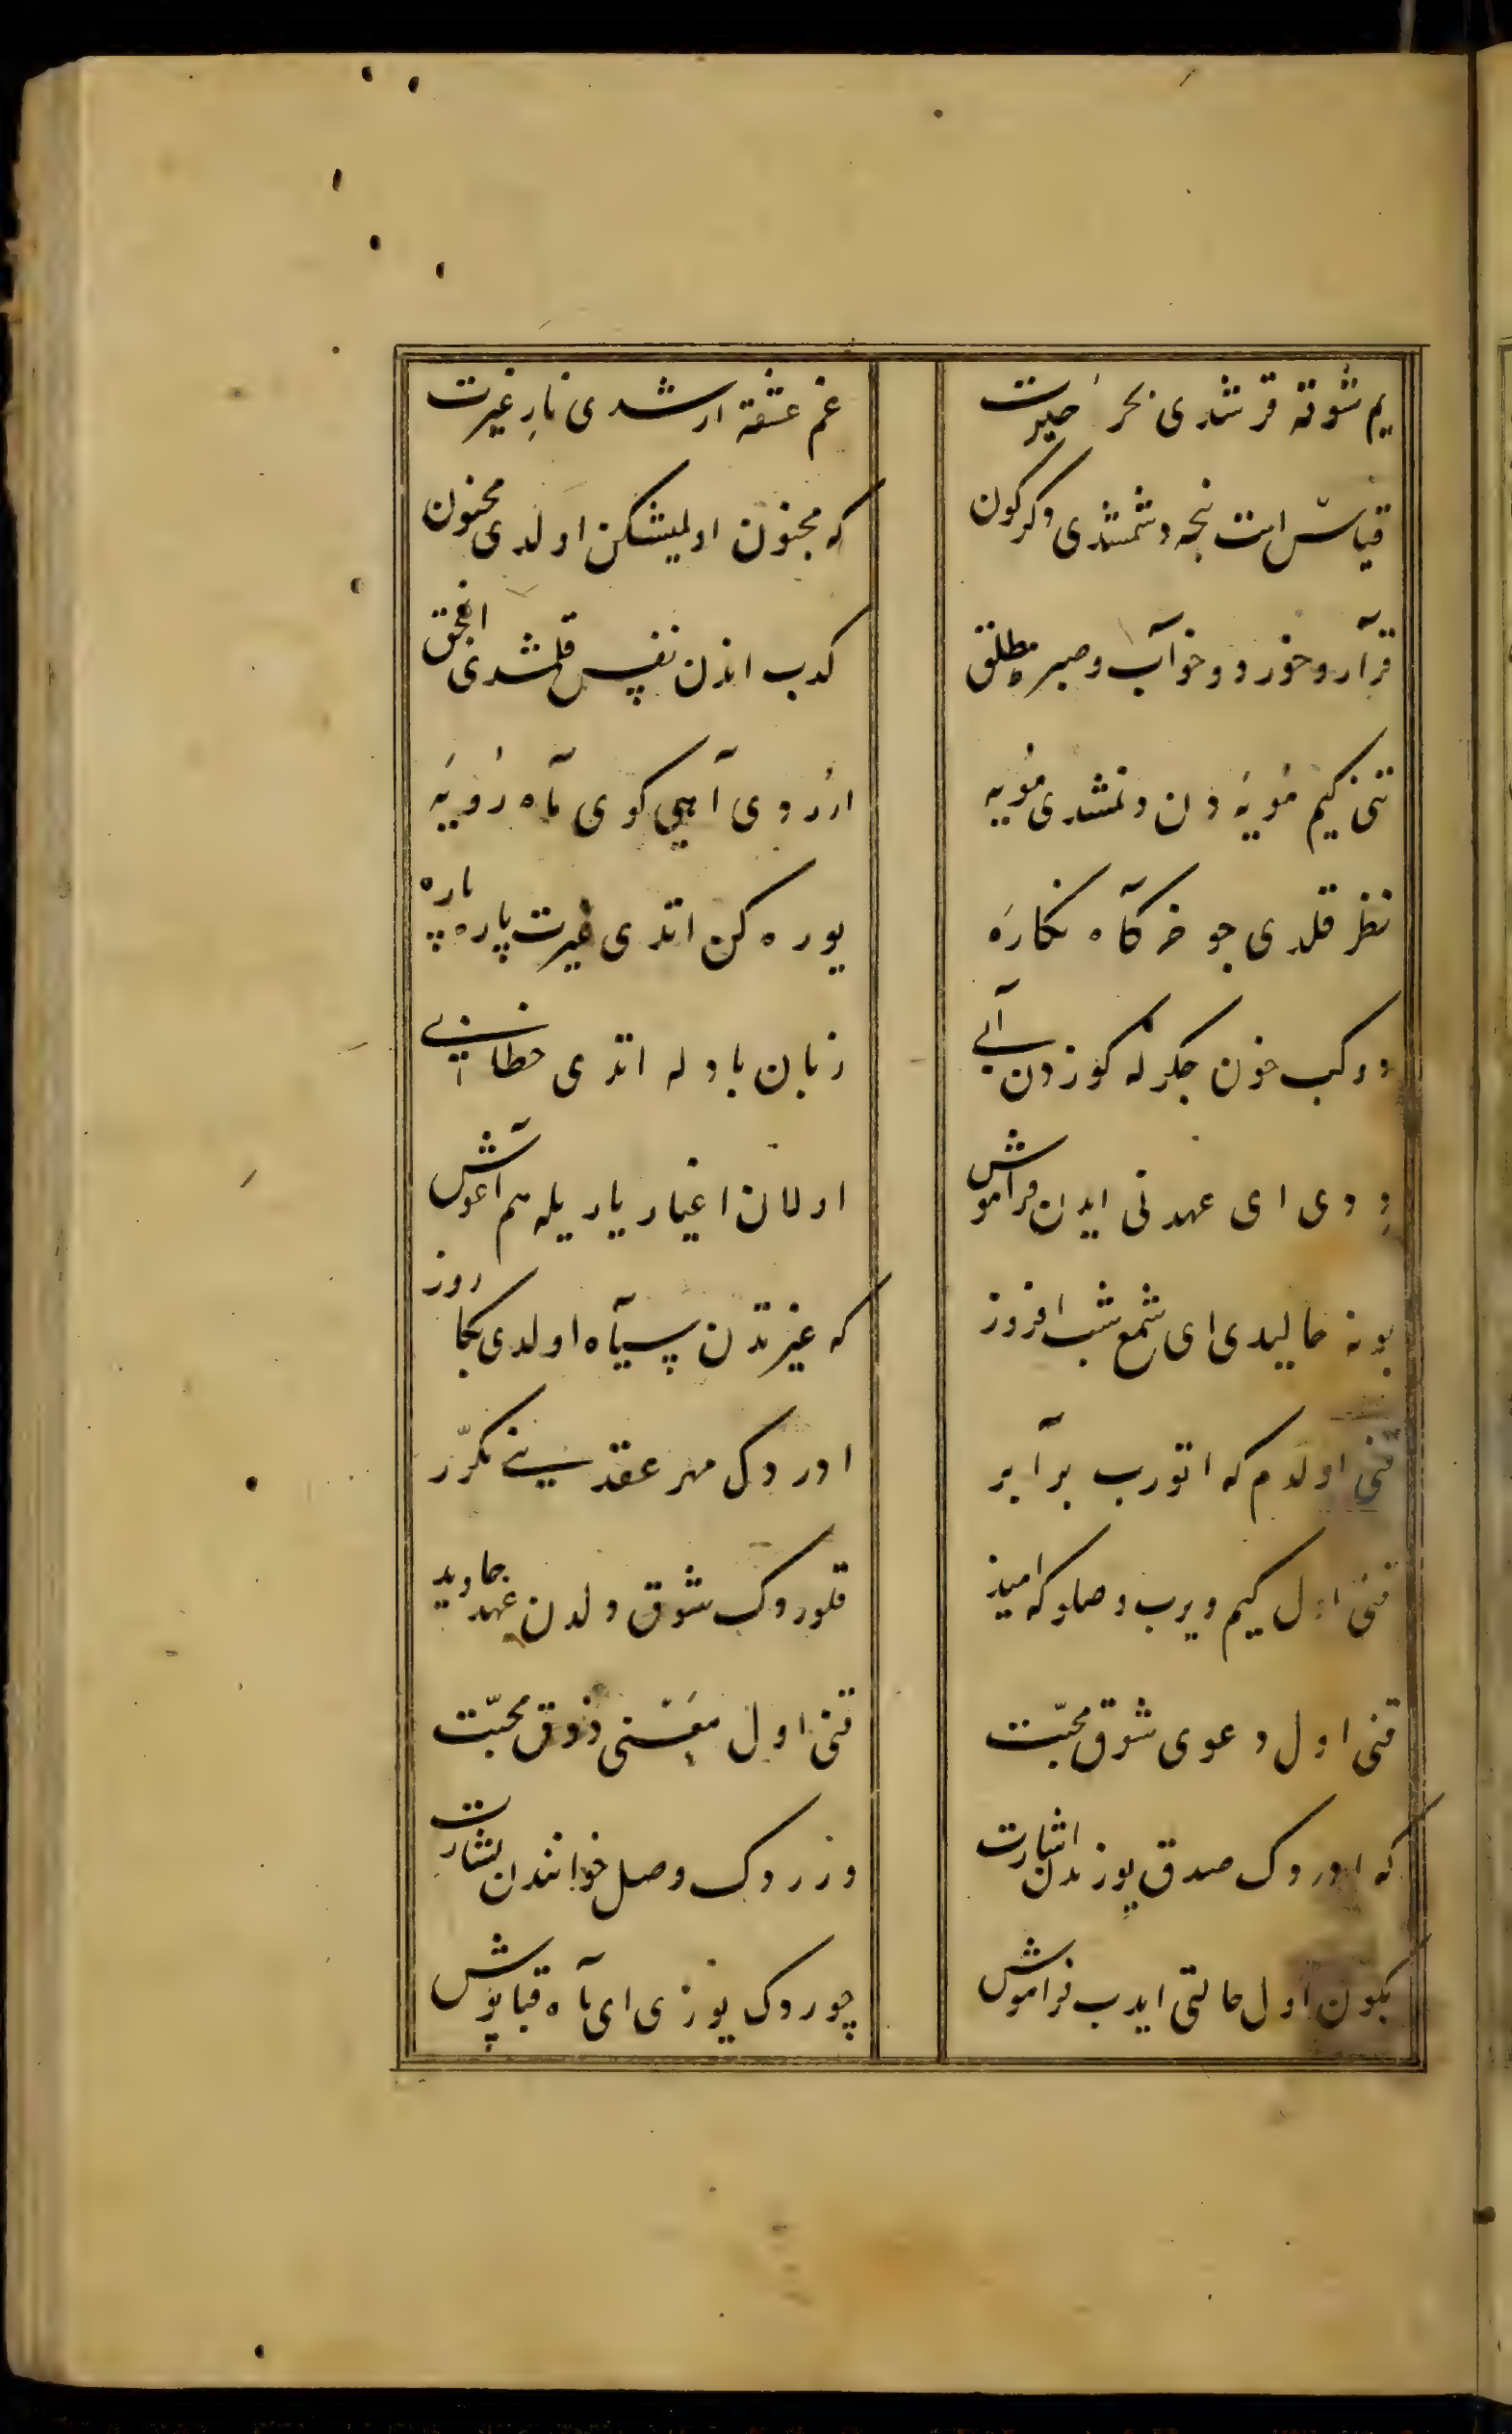 یم شوقنه قرشدی بحر حیرت
غم عشقه ارشدی نارِ غیرت
قیاس ات نجه دشمشدی دکرکون
که مجنون اولمیشکن اولدی مجنون
قرآر و خورد و خوآب و صبر مطلق
کدب اندن نفس قلمشدی انجق
تنی کیم مُویَه دن دنمشدی مُویه
اردی آهی کوی مآه رُویَه
نظر قلدی جو خرکآه نکارَه
یوره کن اتدی غیرت پاره پاره
دوکب خون جکر له کوزدن آبی
زبان باد له اتدی خطابی
دیدی ای عهدنی ایدن فرآموش
اولان اغیار یاریله هم آغوش
بو نه حالیدی ای شمع شب افروز
که غیرتدن سیآه اولدی بکا روز
قنی اولدم که اتورب برآبر
اوردک مهر عقدینی مکرّر
قنی اول کیم ویرب وصلوکه امید
قلوردک شوق ولدن عهد جاوید
قنی اول دعوی شوق محبّت
قنی اول معَنی ذوق محبّت
که اوردک صدق یوزندن اشارت
ویرردک وصل خوانندان بشارت
بکون اول حالتی ایدب فراموش
چوردک یوزی ای مآه قباپوش